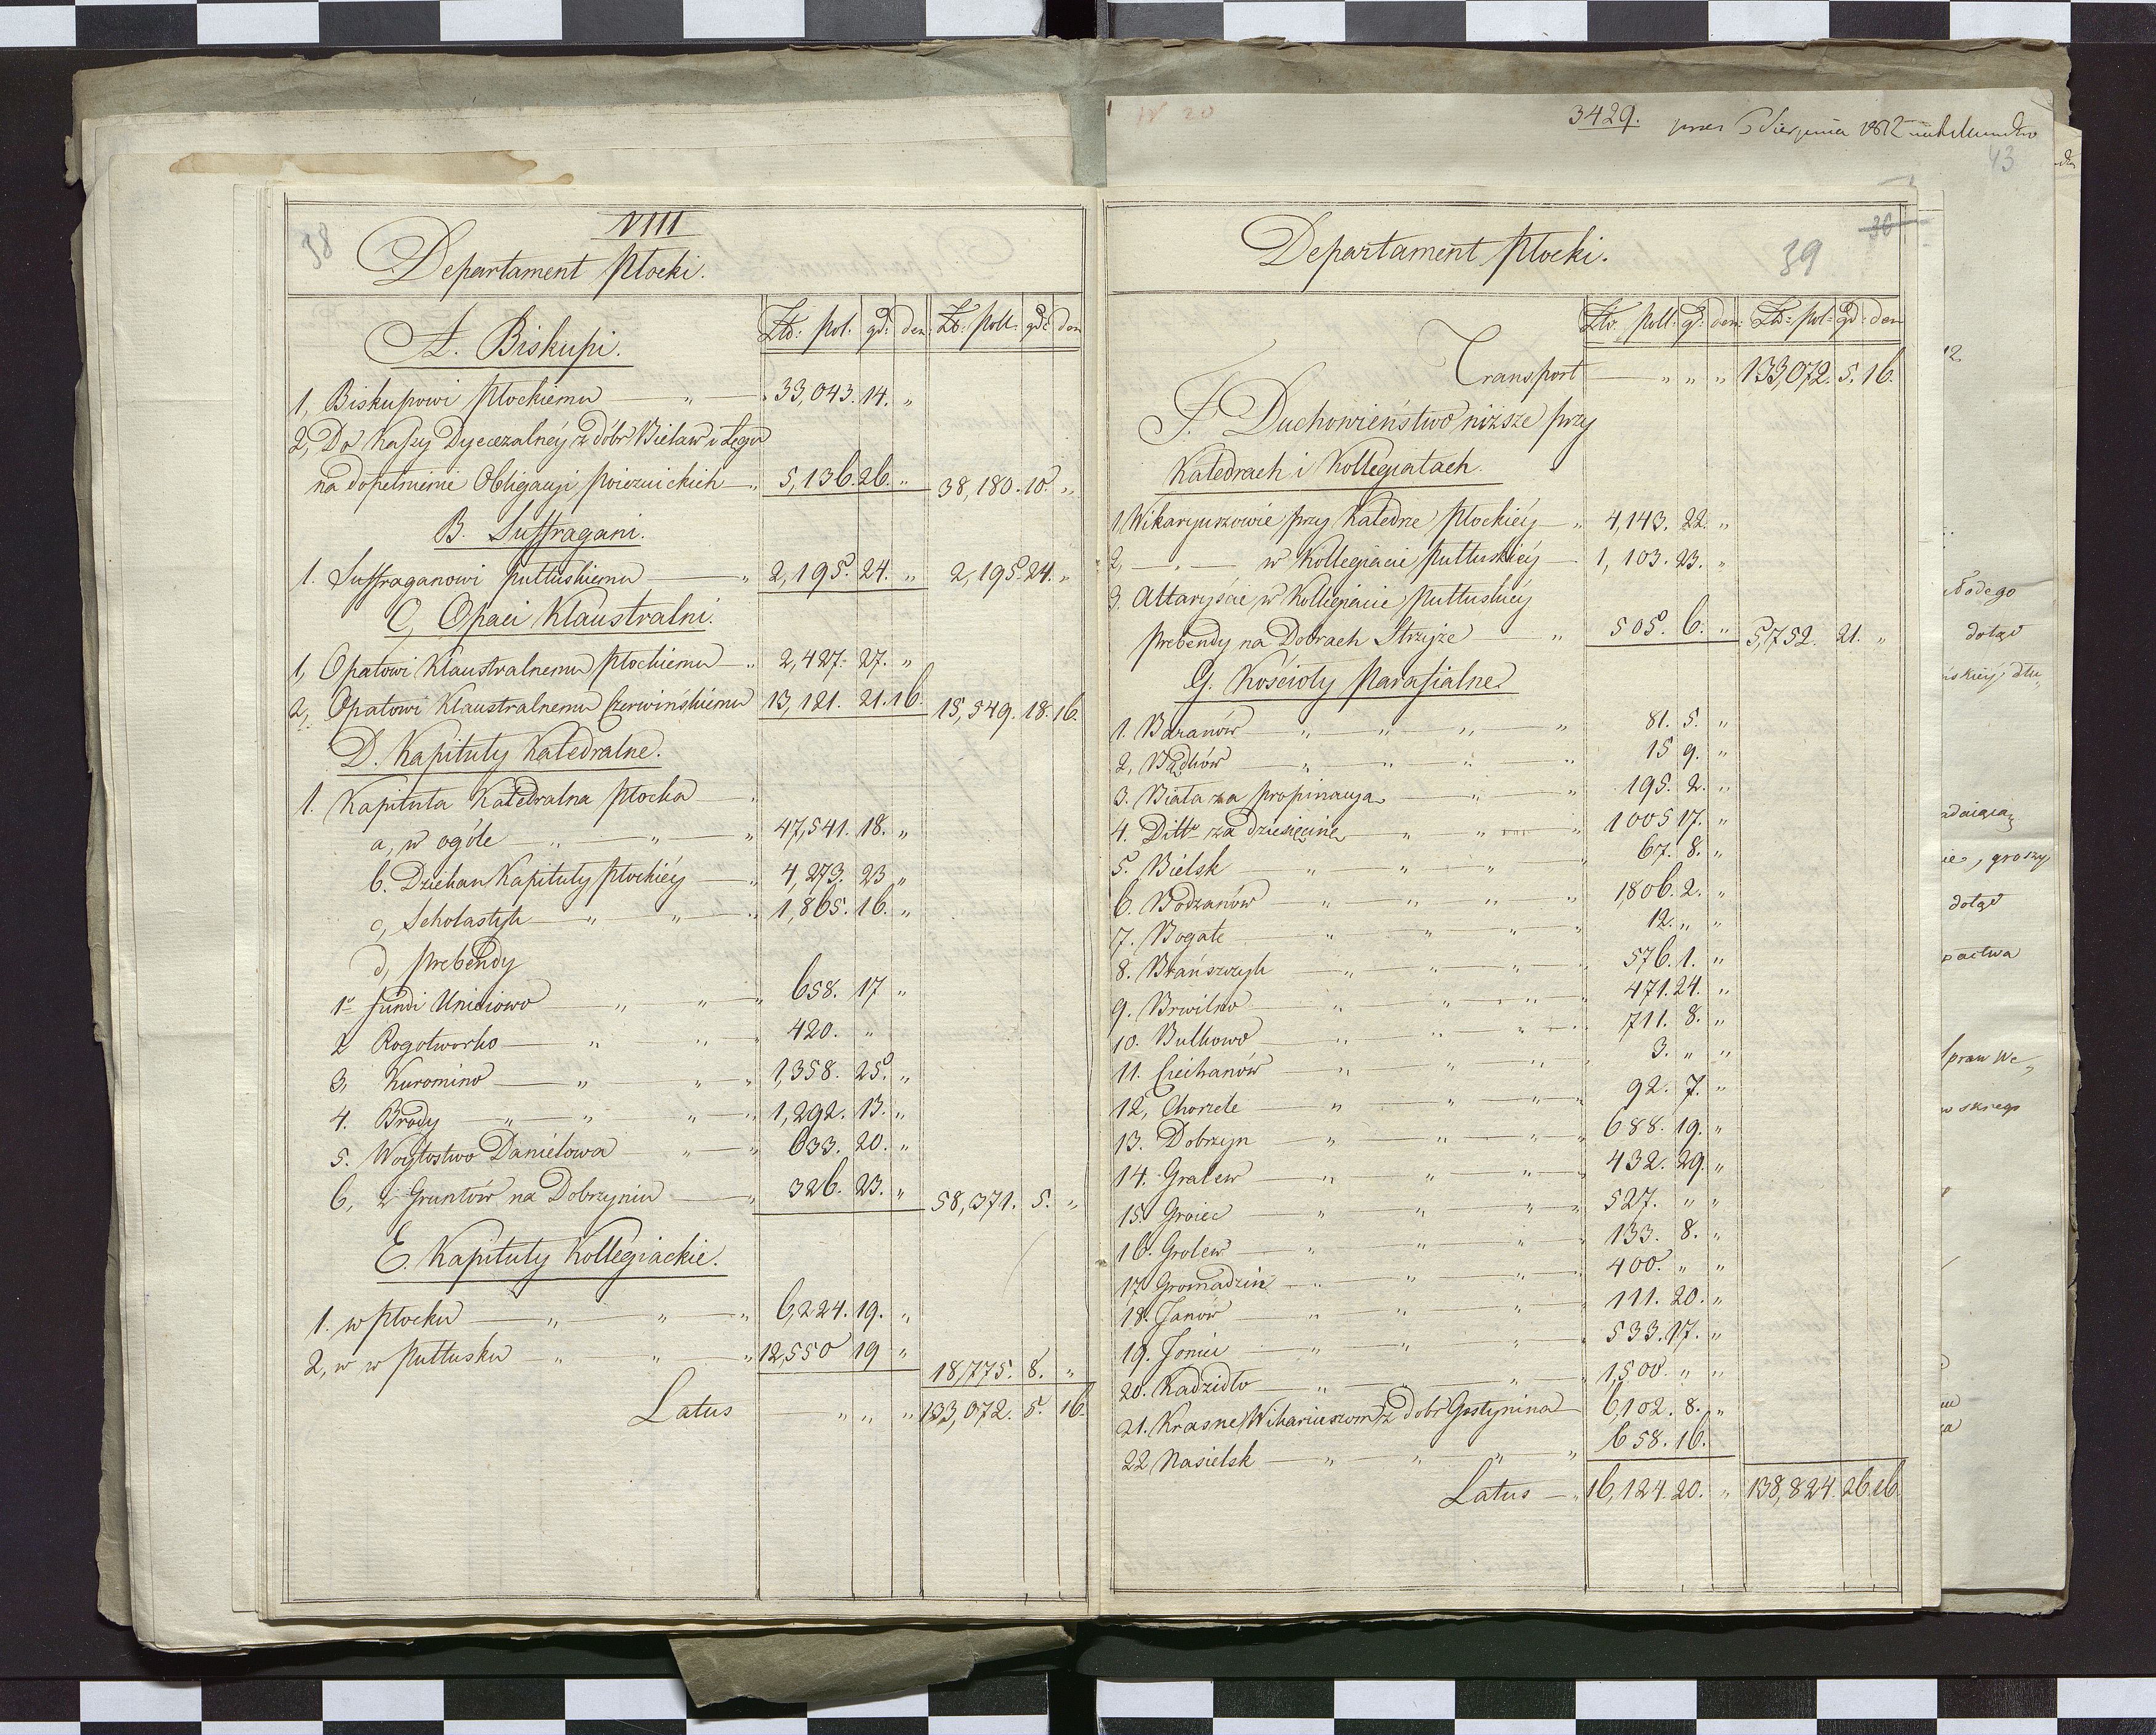 38
VIII
Departament Płocki.
Złt: pol. gr. den. Zł: poll. gr: den
A. Biskupi.
1, Biskupowi Płockiemu — " — " 33,043. 14. "
2, Do Kassy Dyecezalnéy z dóbr Bielaw i Łęgu
na dopełnienie Obligacyi — " 5,136. 26. " 38,180. 10. "
B. Suffragani.
1. Suffraganowi Pułtuskiemu — " 2,195. 24. " 2,195. 24. "
C, Opaci Klaustralni.
1, Opatowi Klaustralnemu Płockiemu — " 2,427. 27. "
2, Opatowi Klaustralnemu Czerwińskiemu 13,121. 21. 16. 15,549. 18. 16.
D. Kapituły Katedralne.
1. Kapituła Katedralna Płocka — "
a, w ogóle — " — " — " 47,541. 18. "
b. Dziekan Kapituły Płockiéy — " 4,273. 23 "
c, Scholastyk — " — " — " 1,865. 16. "
d, Prebendy
1º fundi Uniciowo — " — " — " 658. 17 "
2 Rogotworsko — " — " — " 420. "
3, Kuromino — " — " — " 1,358. 25. "
4. Brody — " — " — " — " 1,292. 13. "
5. Woytostwo Danielowa — " — " 633. 20. "
6, z Gruntów na Dobrzyniu — " 326. 23. " 58,371. 5. "
E. Kapituły Kollegiackie.
1. w Płocku — " — " — " 6,224. 19. "
2, w w Pułtusku — " — " — " 12,550 19 " 18,775. 8. "
Latus " " " 133,072. 5. 16.
Nr 20
3429.
Sierpnia 1812
43
36
39
Departament Płocki.
Złt. poll. gr: den: Zł: pol: gr: den
Transport — " " " 133,072. 5. 16.
F. Duchowieństwo niższe przy
Katedrach i Kollegiatach.
1. Wikaryuszowie przy Katedrze Płockiéy — " 4,143. 22. "
2, — " — w Kollegiacie Pułtuskiéy — 1,103. 23. "
3. Altaryście w Kollegiacie Pułtuskiéy
Prebendy na Dobrach Strzyże — " 505. 6. " 5,752. 21. "
G. Kościoły Parafialne
1. Baranów — " — " — " — " 81. 5. "
2, Bądków — " — " — " — " 15 9. "
3. Biała za propinacyą — " — " 195. 2. "
4. Ditto za dziesięcinę — " — " — " 1005 17. "
5. Bielsk — " — " — " — " 67. 8. "
6. Bodzanów — " — " — " — " 1,806. 2. "
7. Bogate — " — " — " — " 12. " "
8. Brańszczyk — " — " — " — " 576. 1. "
9. Brwilno — " — " — " — " 471. 24. "
10. Bulkowo — " — " — " — " 711. 8. "
11. Ciechanów — " — " — " — " 3. " "
12, Chorzele — " — " — " — " 92. 7. "
13. Dobrzyn — " — " — " — " 688. 19. "
14. Gralew — " — " — " — " 432. 29. "
15. Groiec — " — " — " — " 527. " "
16. Grolew — " — " — " — " 133. 8. "
17 Gromadzin — " — " — " — " 400. " "
18. Janów — " — " — " — " 111. 20. "
19. Joniec — " — " — " — " 533. 17. "
20. Kadzidło — " — " — " — " 1,500. " "
21. Krasne (Wikariuszom) z dobr Gostynina — 6,102. 8. "
22 Nasielsk — " — " — " — " 658. 16.
Latus — " 16,124. 20. " 138,824. 26. 16.
12
dotąd
groszy
dotąd